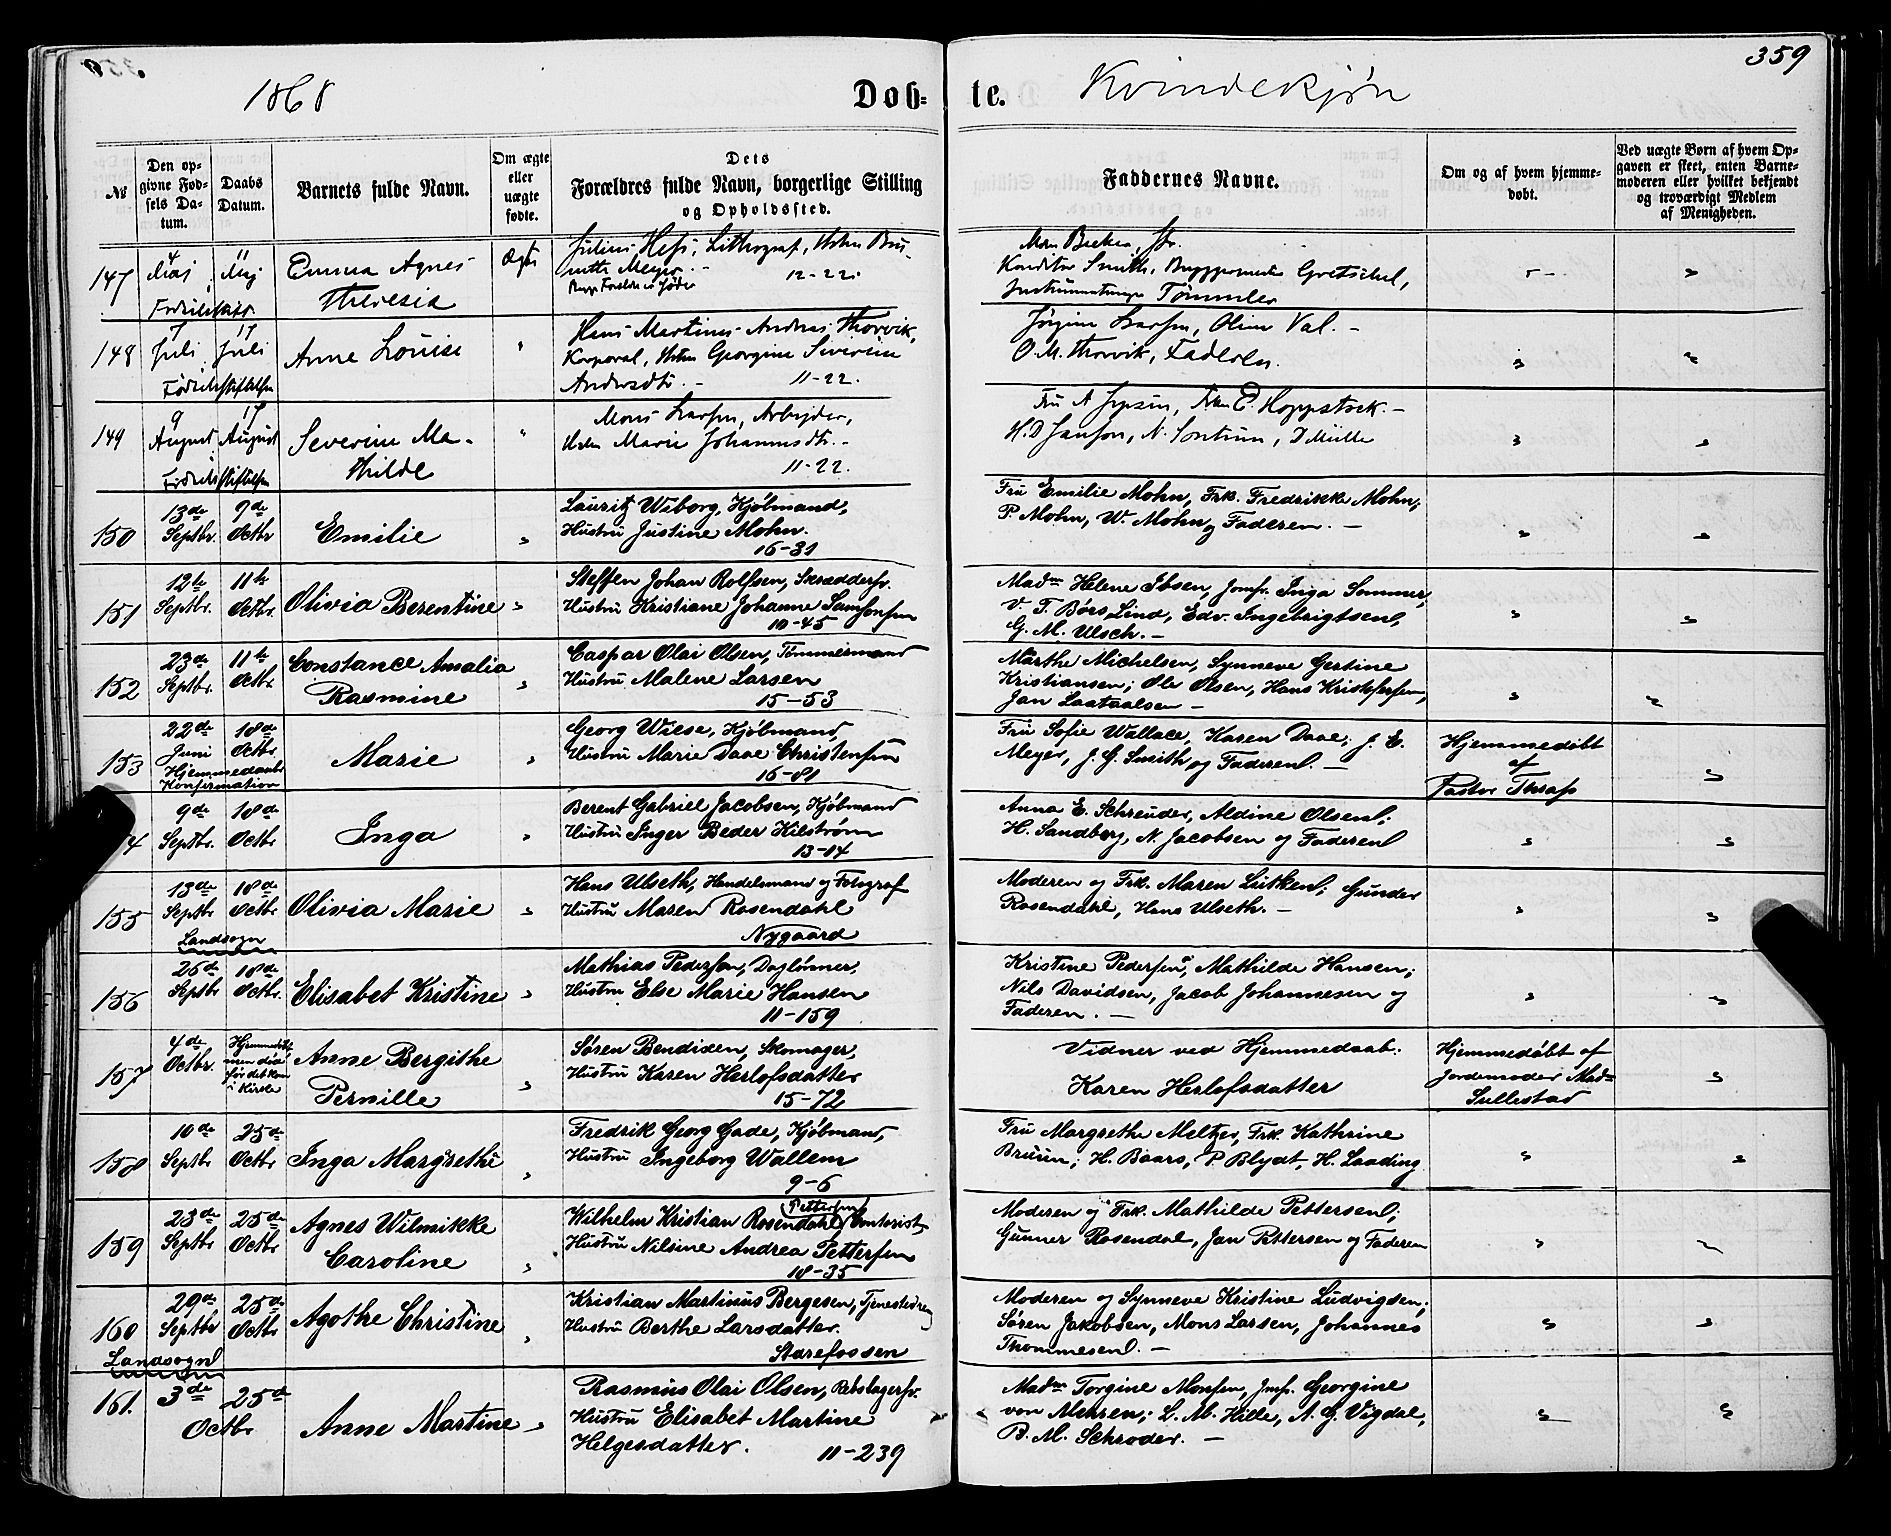 359
1868
Døb= te.
Kvindekjøn
№
Den op-
givne Fød-
sels Da-
tum.
Daabs
Datum.
Barnets fulde Navn.
Om ægte
eller
uægte
fødte.
Dets
Forældres fulde Navn, borgerlige Stilling
og Opholdssted.
Faddernes Navne.
Om og af hvem hjemme-
døbt.
Ved uægte Børn af hvem Op-
gaven er skeet, enten Barne-
moderen eller hvilket bekjendt
og troværdigt Medlem
af Menigheden.
147
4
Maj
11
Maj
Emma Agnes
Theresia
Ægte
Julius Hess, Lithograf,
Meyer
12-22.
Konditor Smith, Gretschel,
Tømmler
148
7
Juli
17
Juli
Fødselsstiftelsen
Anne Louise
Hans Martinus Andreas Thorvik,
Korporal, Georgine Severine
Andersdtr. -
11-22.
Jørgine Larsen, Oline Val. -
O. M. Thorvik, Faderen.
149
9
August
17
August
Fødselsstiftelsen
Severine Ma-
thilde
Mons Larsen, Arbejder,
Marie Johannesdtr. -
11-22.
Fru A Jepsen, E. Hoppstock. -
H. D Janson, N. Sontum, D Müller
150
13de
Septbr.
9de
Octbr
Emilie
Lauritz Wiborg, Kjøbmand,
Hustru Justine Mohn.
16-31
Fru Emilie Mohn, Frk. Fredrikke Mohn,
P. Mohn, W. Mohn og Faderen. -
151
12te
Septbr.
11te
Octbr.
Olivia Berentine
Steffen Johan Rolfsen, Skræddersv.
Hustru Kristiane Johanne Samsonsen
10-45
Madm Helene Ibsen, Jomfr. Inga Sommer,
V. F. Børs Lind, Edv. Ingebrigtsen,
G. M. Ulsch. -
152
23de
Septbr.
11te
Octbr.
Constance Amalia
Rasmine
Caspar Olai Olsen, Tømmermand
Hustru Malene Larsen
15-53
Marthe Michelsen, Synneve Gertine
Kristiansen; Ole Olsen, Hans Kristofersen,
Jan Laataalsen -
153
22de
Juni
18de
Octbr
Hjemmedaabs
Konfirmation
Marie
Georg Wiese, Kjøbmand,
Hustru Marie Daae Christensen
16-81
Fru Sofie Wallace, Karen Daae; J. E.
Meyer, J. G. Smith og Faderen. -
Hjemmedøbt
af
Pastor Thrap
4
9de
Septbr.
18de
Octbr
Inga
Berent Gabriel Jacobsen, Kjøbmand
Hustru Inger Beder Kilstrøm
13-14
Anna E. Schreuder, Aldine Olsen;
H. Sandberg, N. Jacobsen og Faderen
155
13de
Septbr
18de
Octbr
Landsogn
Olivia Marie
Hans Ulseth, Handelsmand og Fotograf
Hustru Maren Rosendahl
Nygaard
Moderen og Frk. Maren Lütken; Gunder
Rosendahl, Hans Ulseth. -
156
26de
Septbr
18de
Octbr.
Elisabet Kristine
Mathias Pedersen, Daglønner,
Hustru Else Marie Hansen
11-159
Kristine Pedersen, Mathilde Hansen;
Nils Davidsen, Jacob Johannesen og
Faderen. -
157
4de
Octbr.
Hjemmedøbt
men døde
før det kom
i Kirke
Anne Bergithe
Pernille
Søren Bendixen, Skomager,
Hustru Karen Herlofsdatter
15-72
Vidner ved Hjemmedaab:
Karen Herlofsdatter
Hjemmedøbt af
Jordemoder Madm
Sullestad
158
10de
Septbr
25de
Octbr
Inga Margrethe
Fredrik Georg Gade, Kjøbmand,
Hustru Ingeborg Wallem
9-6
Fru Margrethe Meltzer, Frk. Kathrine
Bruun; H. Baars, P. Blydt, H. Laading
159
23de
Septbr
25de
Octbr
Agnes Wilmikke
Caroline
Pettersen
Wilhelm Kristian Rosendahl, Contorist,
Hustru Nilsine Andrea Pettersen
18-35
Moderen og Frk. Mathilde Pettersen;
Gunner Rosendal, Jan Pettersen og Faderen
160
29de
Septbr
25de
Octbr
Landsogn
Agothe Christine
Kristian Martinus Bergesen, Tjenestedreng
Hustru Berthe Larsdatter.
Starefossen
Moderen og Synneve Kristine Ludvigsen;
Søren Jakobsen, Mons Larsen, Johannes
Thommesen. -
161.
3de
25de
Octbr
Anne Martine
Rasmus Olai Olsen, Rebslagersv.
Hustru Elisabet Martine
Helgesdatter.
11-239
Madm Torgine Monsen, Jmfr. Georgine
von Mehren; L. M. Hille, A. G. Vigdal,
B. M. Schrøder. -